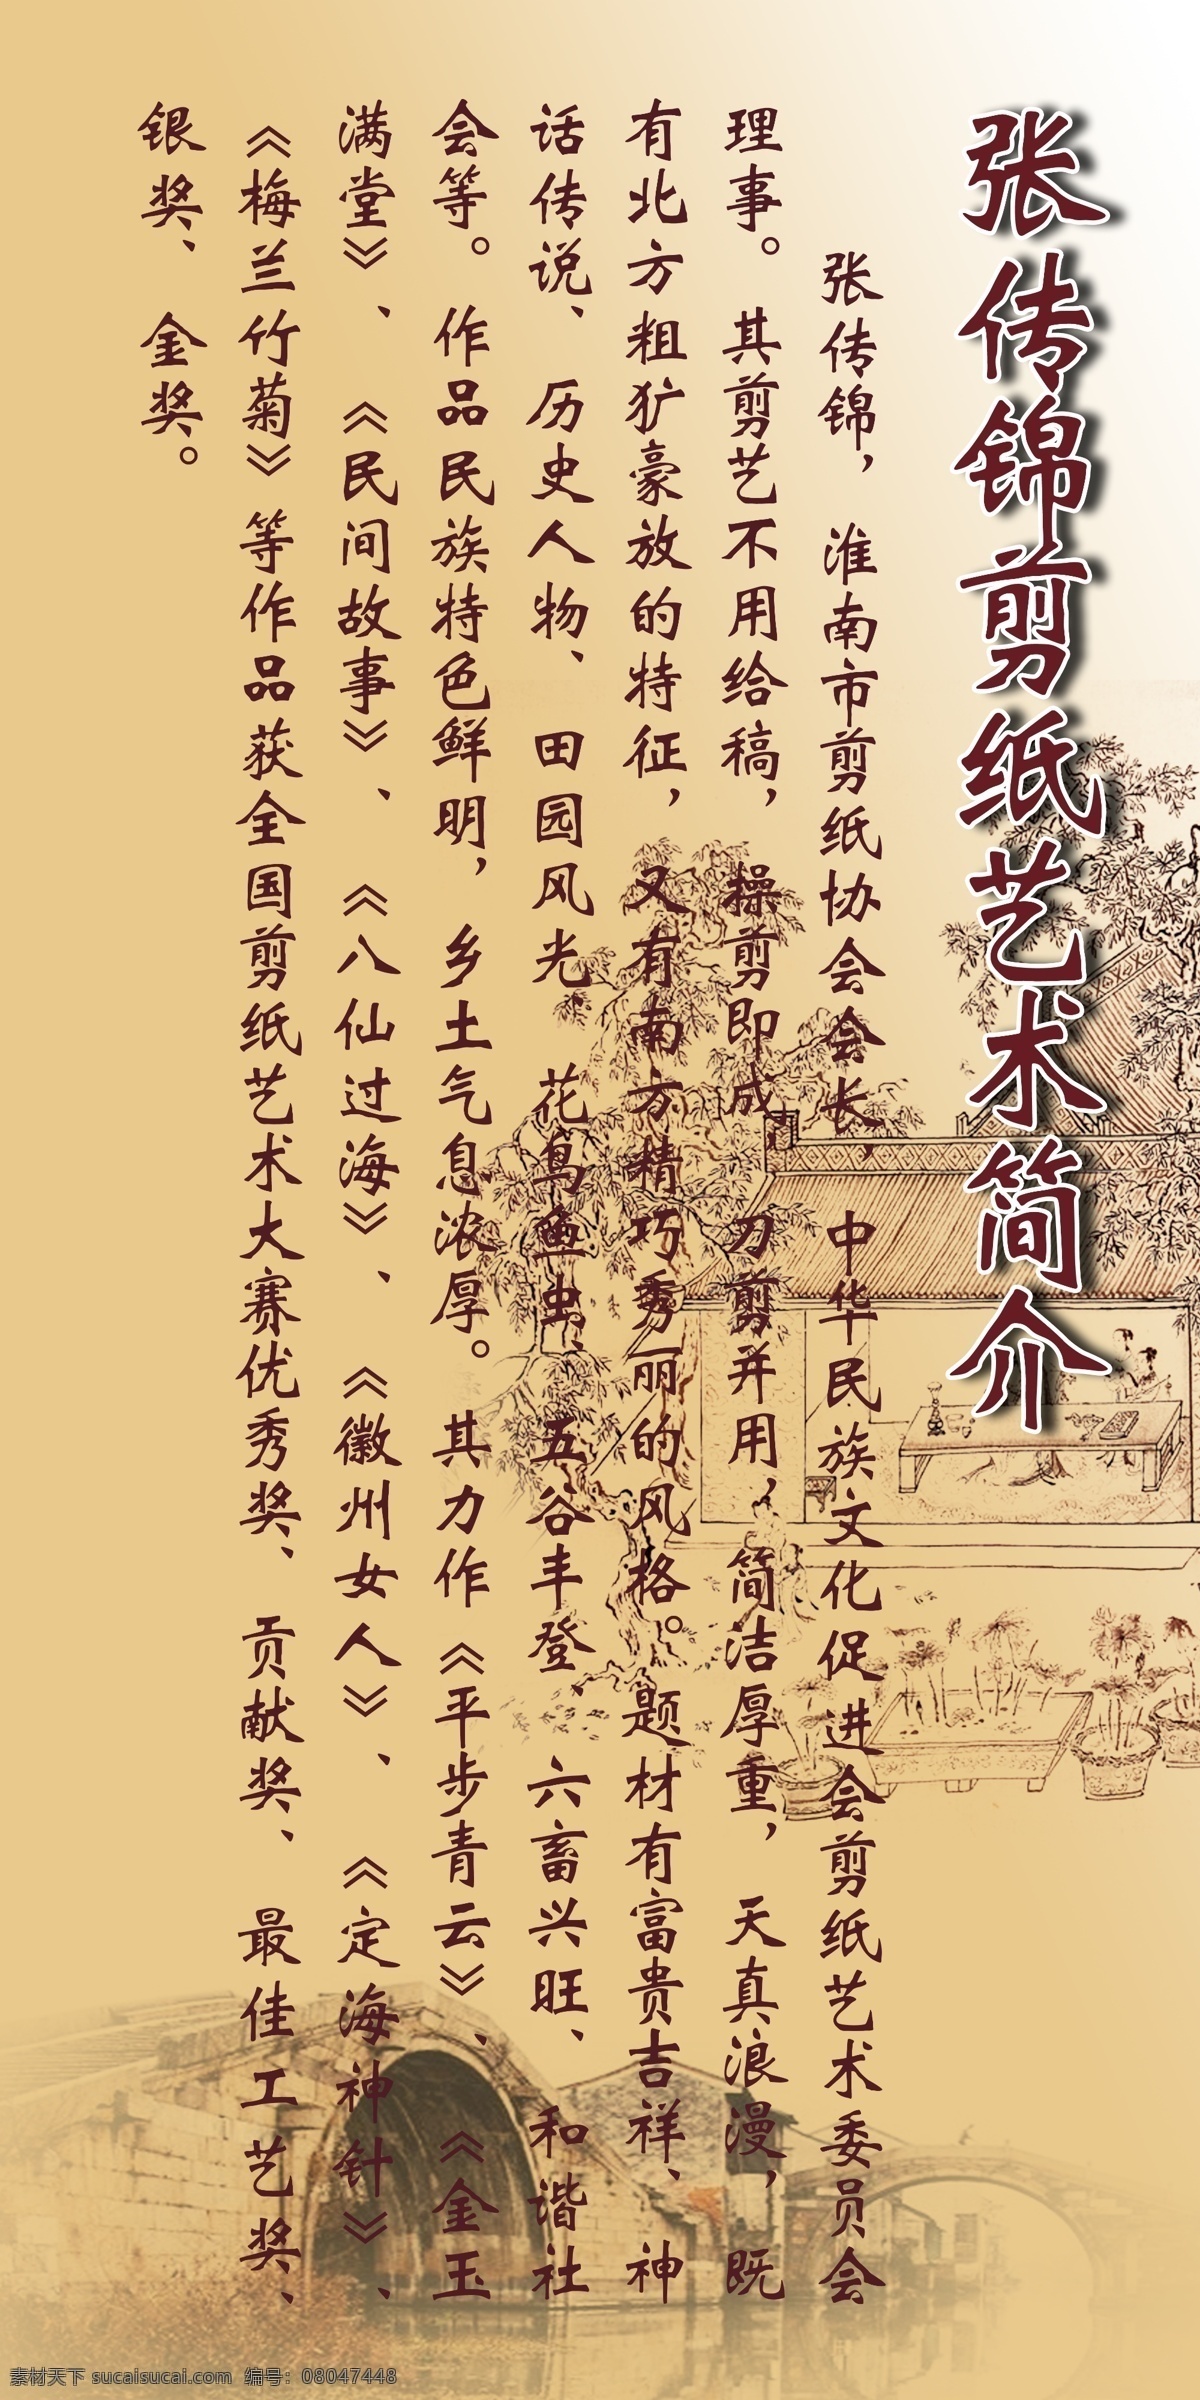 张传锦剪纸艺术简介
张传锦，淮南市剪纸协会会长，中华民族文化促进会剪纸艺术委员会
理事。其剪艺不用给稿，操剪即成，刀剪并用，简洁厚重，天真浪漫，既
有北方粗犷豪放的特征，又有南方精巧秀丽的风格。题材有富贵吉祥、神
话传说、历史人物、田园风光、花鸟鱼虫、五谷丰登、六畜兴旺、和谐社
会等。作品民族特色鲜明，乡土气息浓厚。其力作《平步青云》、《金玉
满堂》、《民间故事》、《八仙过海》、《徽州女人》、《定海神针》、
《梅兰竹菊》等作品获全国剪纸艺术大赛优秀奖、贡献奖、最佳工艺奖、
银奖、金奖。
素材天下 sucaisucai.com 编号：08047448